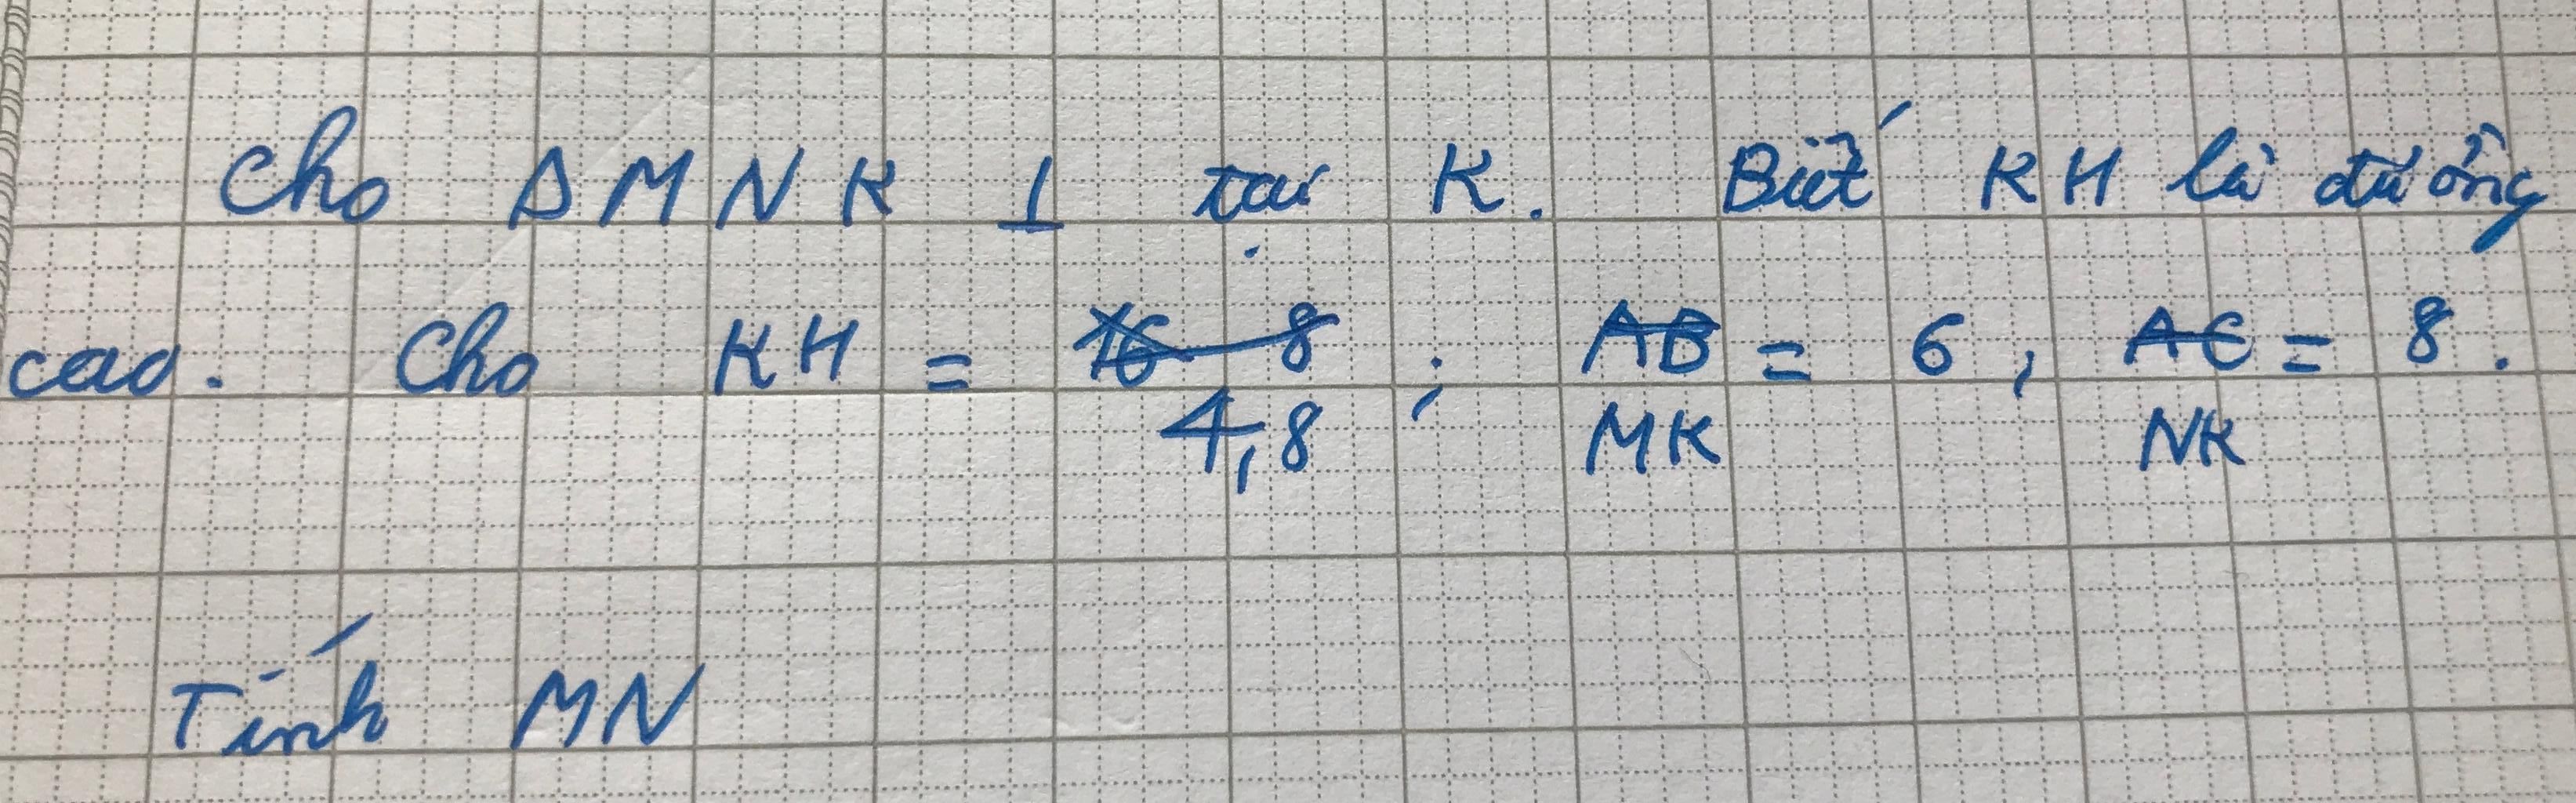 Cho Δ MNK ⊥ tại K. Biết KH là đường
cao. Cho KH = 16 8 ; AB = 6, AC = 8.
4,8 MK NK
Tính MN